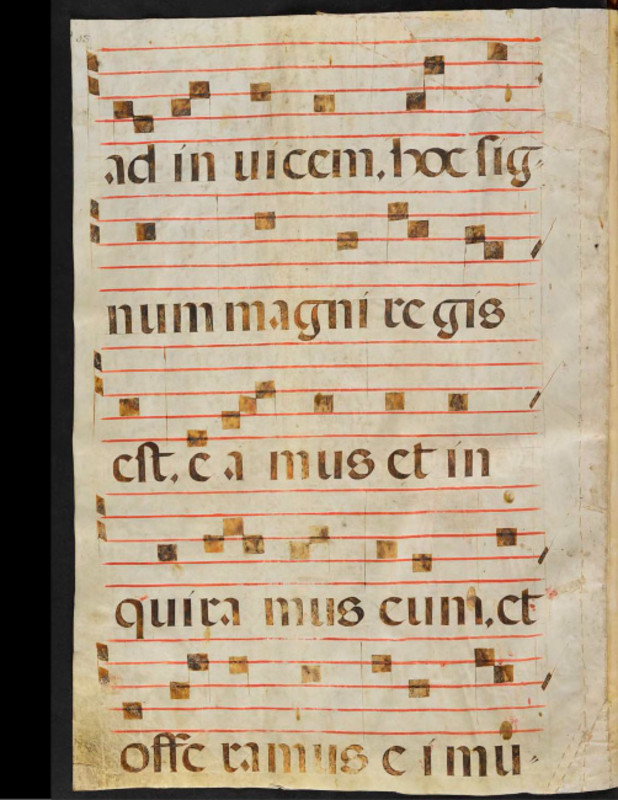 ad in uicem, hoc sig-
num magni regis
est, e a mus et in
quira mus eum, et
offe ramus e i mu-